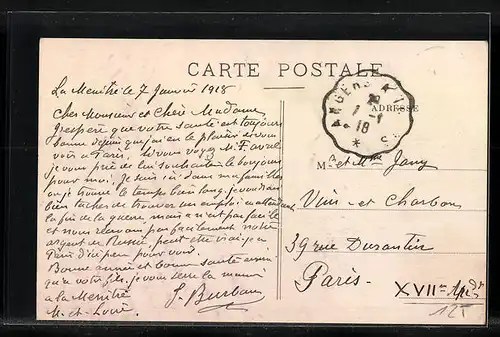 CARTE POSTALE
La Menitré le 7 Janvier 1918
Cher Monsieur et Chère Madame,
J'espère que votre santé est toujours
bonne depuis que j'ai eu le plaisir de vous
voir à Paris, si vous voyez M. Favrel
je vous prie de lui souhaiter le bonjour
pour moi. Je suis ici dans ma famille
où je trouve le temps bien long. je voudrais
bien tâcher de trouver un emploi en attendant
la fin de la guerre, mais ce n'est pas facile
et nous n'avons pas facilement notre
argent de Russie, peut être vrai-je
Paris d'ici peu pour voir.
Bonne année et bonne santé ainsi
qu'à votre fils. je vous serre la main
à la Menitré
M.-et-Loire
J. Burban
ANGERS
18
ADRESSE
M. et Mme Jamy
Vins et Charbons
39 rue Durantin
Paris -
XVIIe
12F